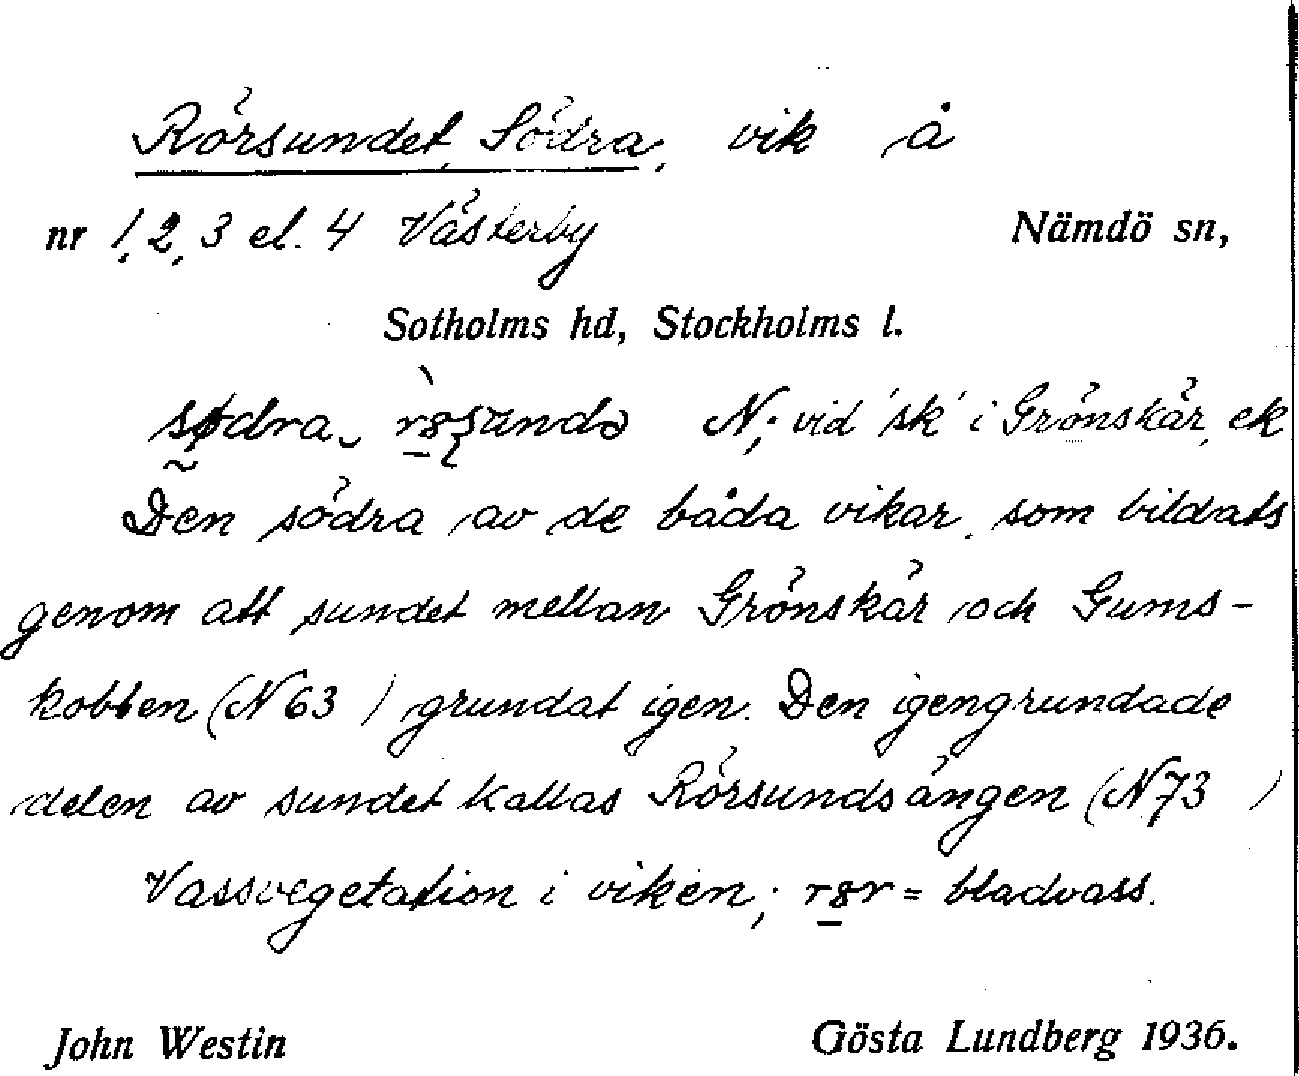 Rörsundet, Södra, vik å
nr 1, 2, 3 el. 4 Västerby Nämdö sn,
Sotholms hd, Stockholms l.
södra N; vid 'sk' i Grönskär, ek
Den södra av de båda vikar, som bildats
genom att sundet mellan Grönskär och Gums-
kobben (N 63 ) grundat igen. Den igengrundade
delen av sundet kallas Rörsundsängen (N 73 )
Vassvegetation i viken; = bladvass.
John Westin Gösta Lundberg 1936.